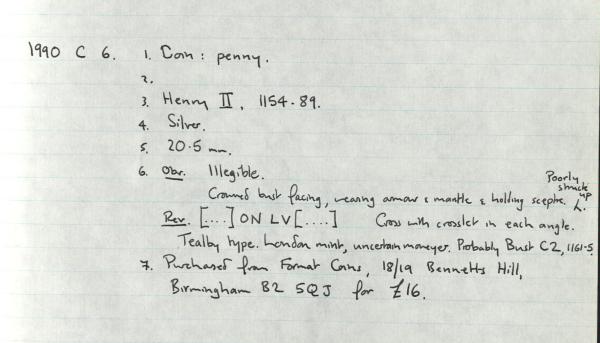 1990 C 6. 1. Coin : penny.
2.
3. Henry II, 1154-89.
4. Silver.
5. 20.5 mm.
6. Obv. Illegible.
Crowned bust facing, wearing armour & mantle & holding sceptre. Poorly struck up
Rev. [...] ON LV[....] Cross with crosslet in each angle.
Tealby type. London mint, uncertain moneyer. Probably Bust C2, 1161-5
7. Purchased from Format Coins, 18/19 Bennetts Hill,
Birmingham B2 5QJ for £16.